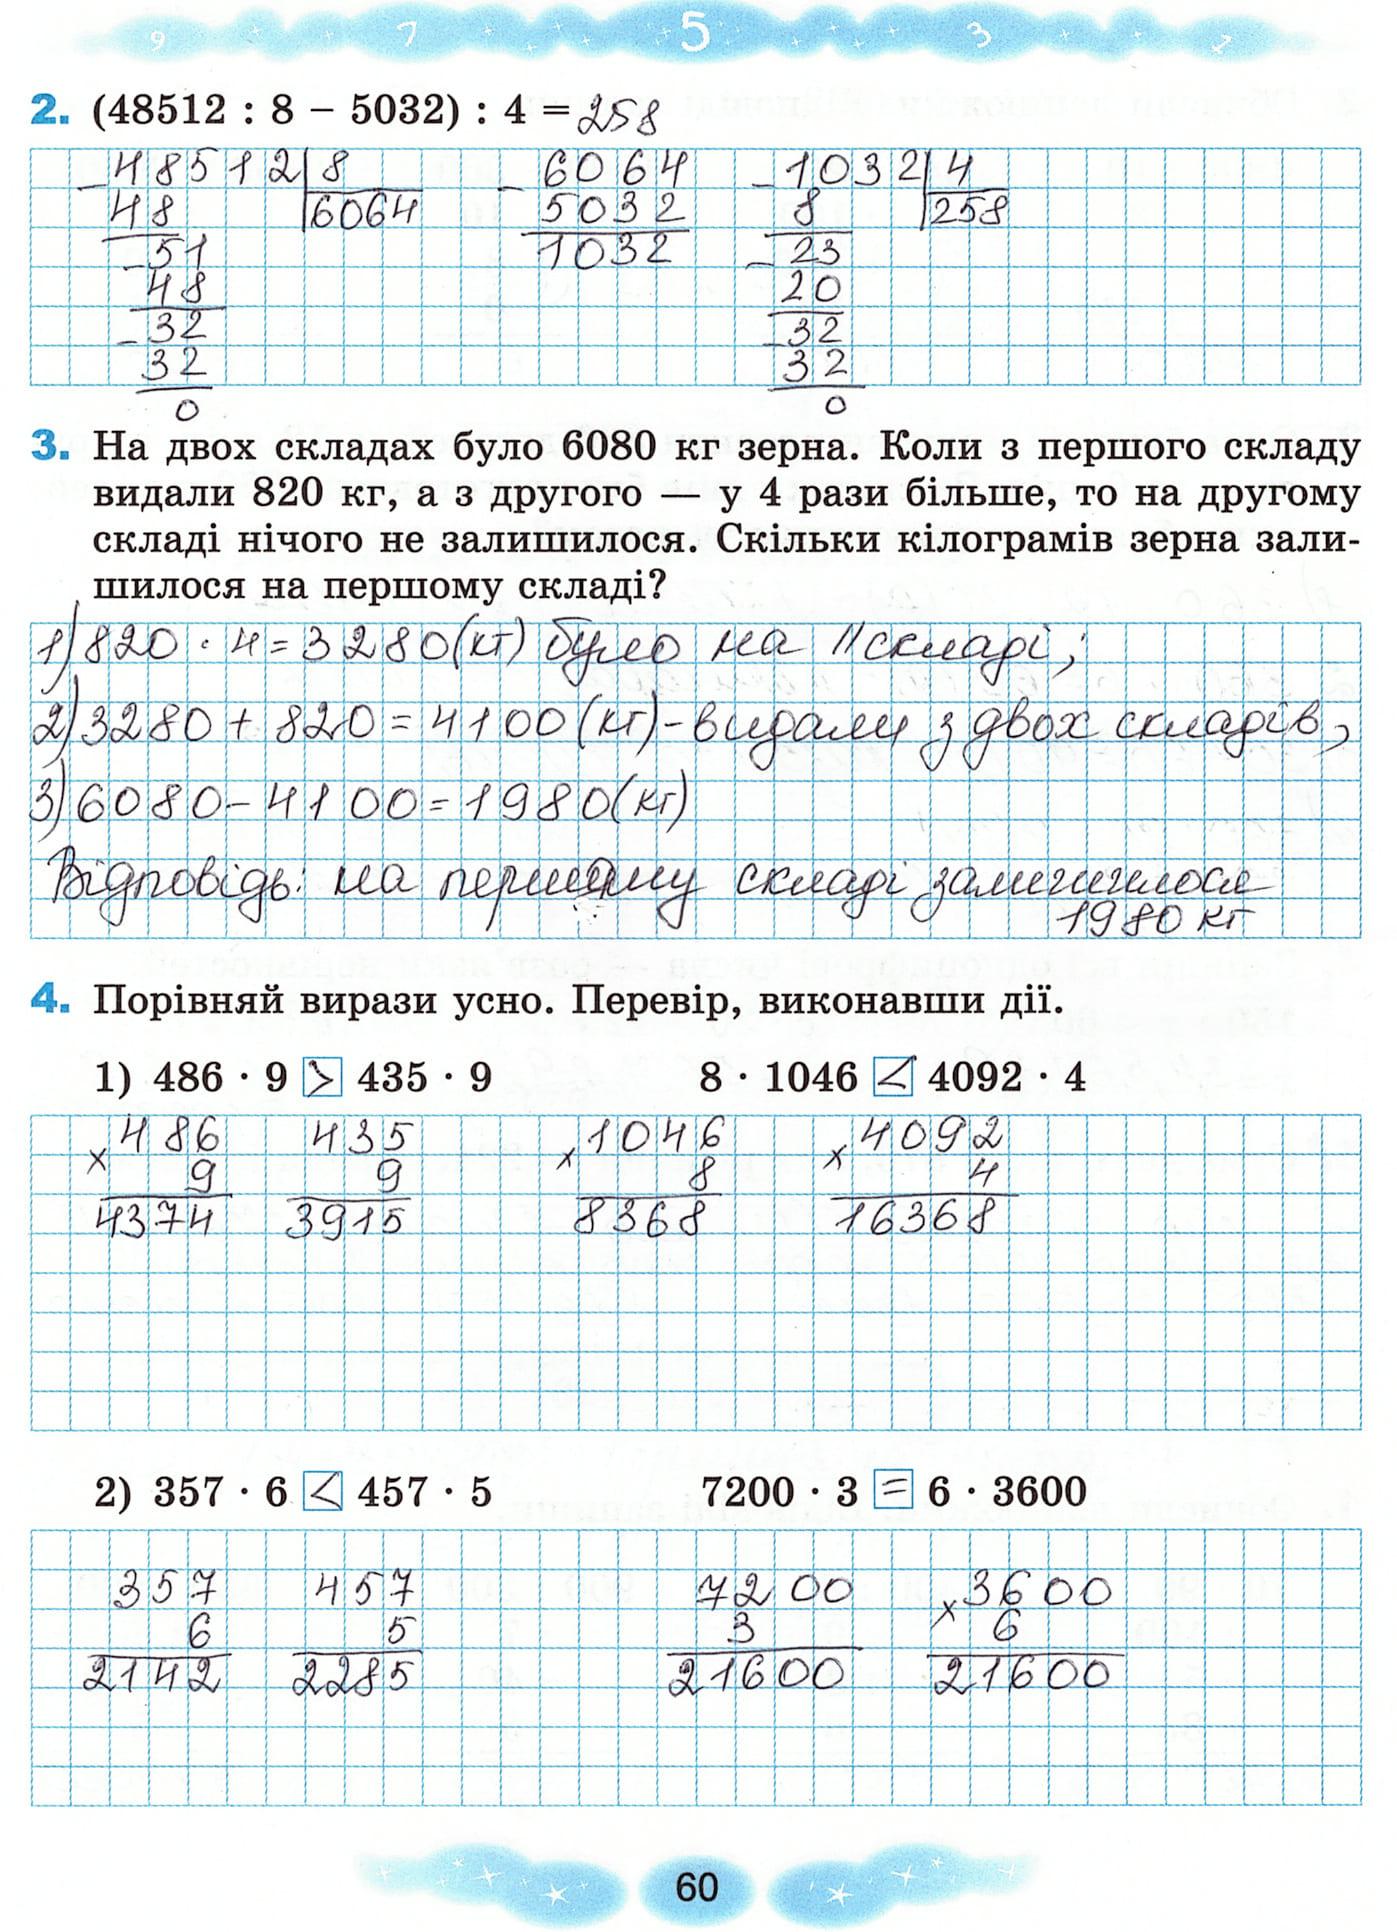 9 7 5 3 1
2. (48512 : 8 – 5032) : 4 = 258
– 48512 | 8    – 6064    – 1032 | 4
48 | 6064    5032    8 | 258
– 51    1032    – 23
48    20
– 32    – 32
32    32
0    0
3. На двох складах було 6080 кг зерна. Коли з першого складу
видали 820 кг, а з другого — у 4 рази більше, то на другому
складі нічого не залишилося. Скільки кілограмів зерна зали-
шилося на першому складі?
1) 820 · 4 = 3280 (кг) було на II складі;
2) 3280 + 820 = 4100 (кг) – видали з двох складів;
3) 6080 – 4100 = 1980 (кг)
Відповідь: на першому складі залишилося
1980 кг
4. Порівняй вирази усно. Перевір, виконавши дії.
1) 486 · 9 > 435 · 9    8 · 1046 < 4092 · 4
x 486    435    x 1046    x 4092
9    9    8    4
4374    3915    8368    16368
2) 357 · 6 < 457 · 5    7200 · 3 = 6 · 3600
357    457    7200    x 3600
6    5    3    6
2142    2285    21600    21600
60